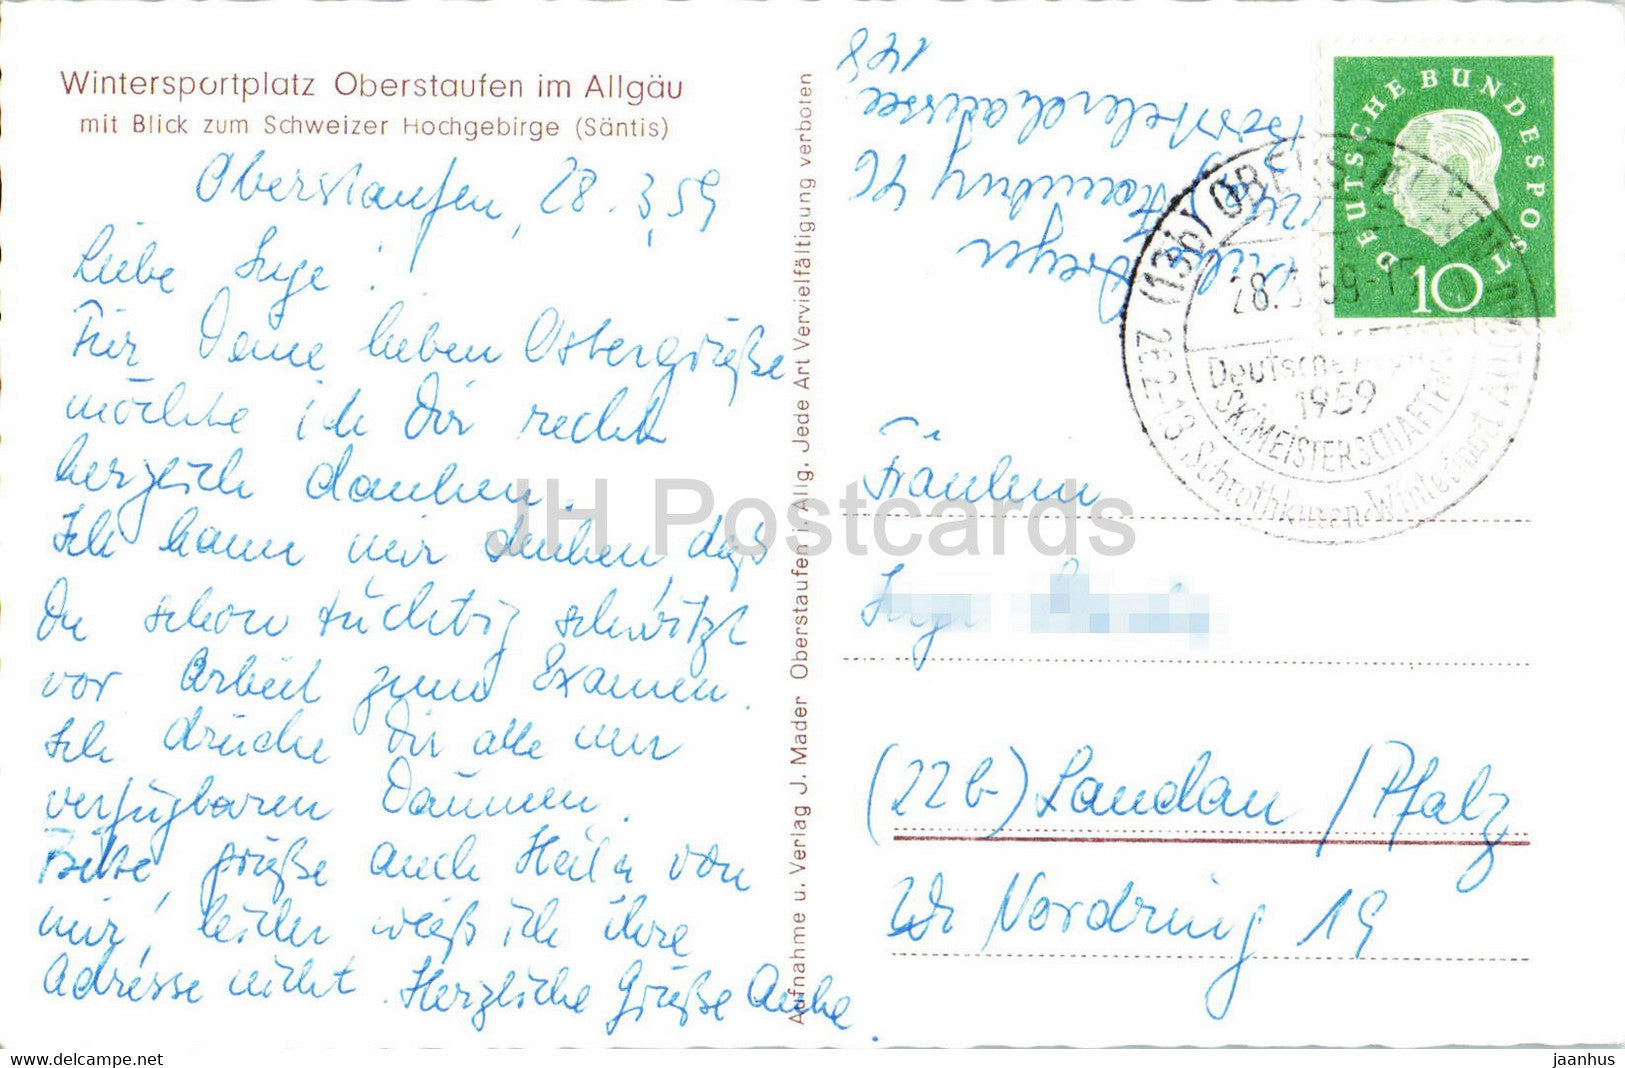 Wintersportplatz Oberstaufen im Allgäu
mit Blick zum Schweizer Hochgebirge (Säntis)
Oberstaufen, 28.3.59
Liebe Inge!
Für Deine lieben Ostergrüße
möchte ich Dir recht
herzlich danken.
Ich kann mir denken, daß
Du schon tüchtig schwitzt
vor Arbeit zum Examen.
Ich drücke Dir alle nur
verfügbaren Daumen.
Bitte, grüße auch Heila von
mir, leider weiß ich ihre
Adresse nicht. Herzliche Grüße Anke.
Aufnahme u. Verlag J. Mader Oberstaufen i. Allg. Jede Art Vervielfältigung verboten
Dreyer
Hamburg
148
DEUTSCHE BUNDESPOST
10
(13b) OBERSTAUFEN
28.3.59-15
Deutsche
1959
SKIMEISTERSCHAFTEN
Schrothkuren-Wintersport
Fräulein
Inge
(22b) Landau / Pfalz
Nordring 19
JH Postcards
www.delcampe.net
jaanhus